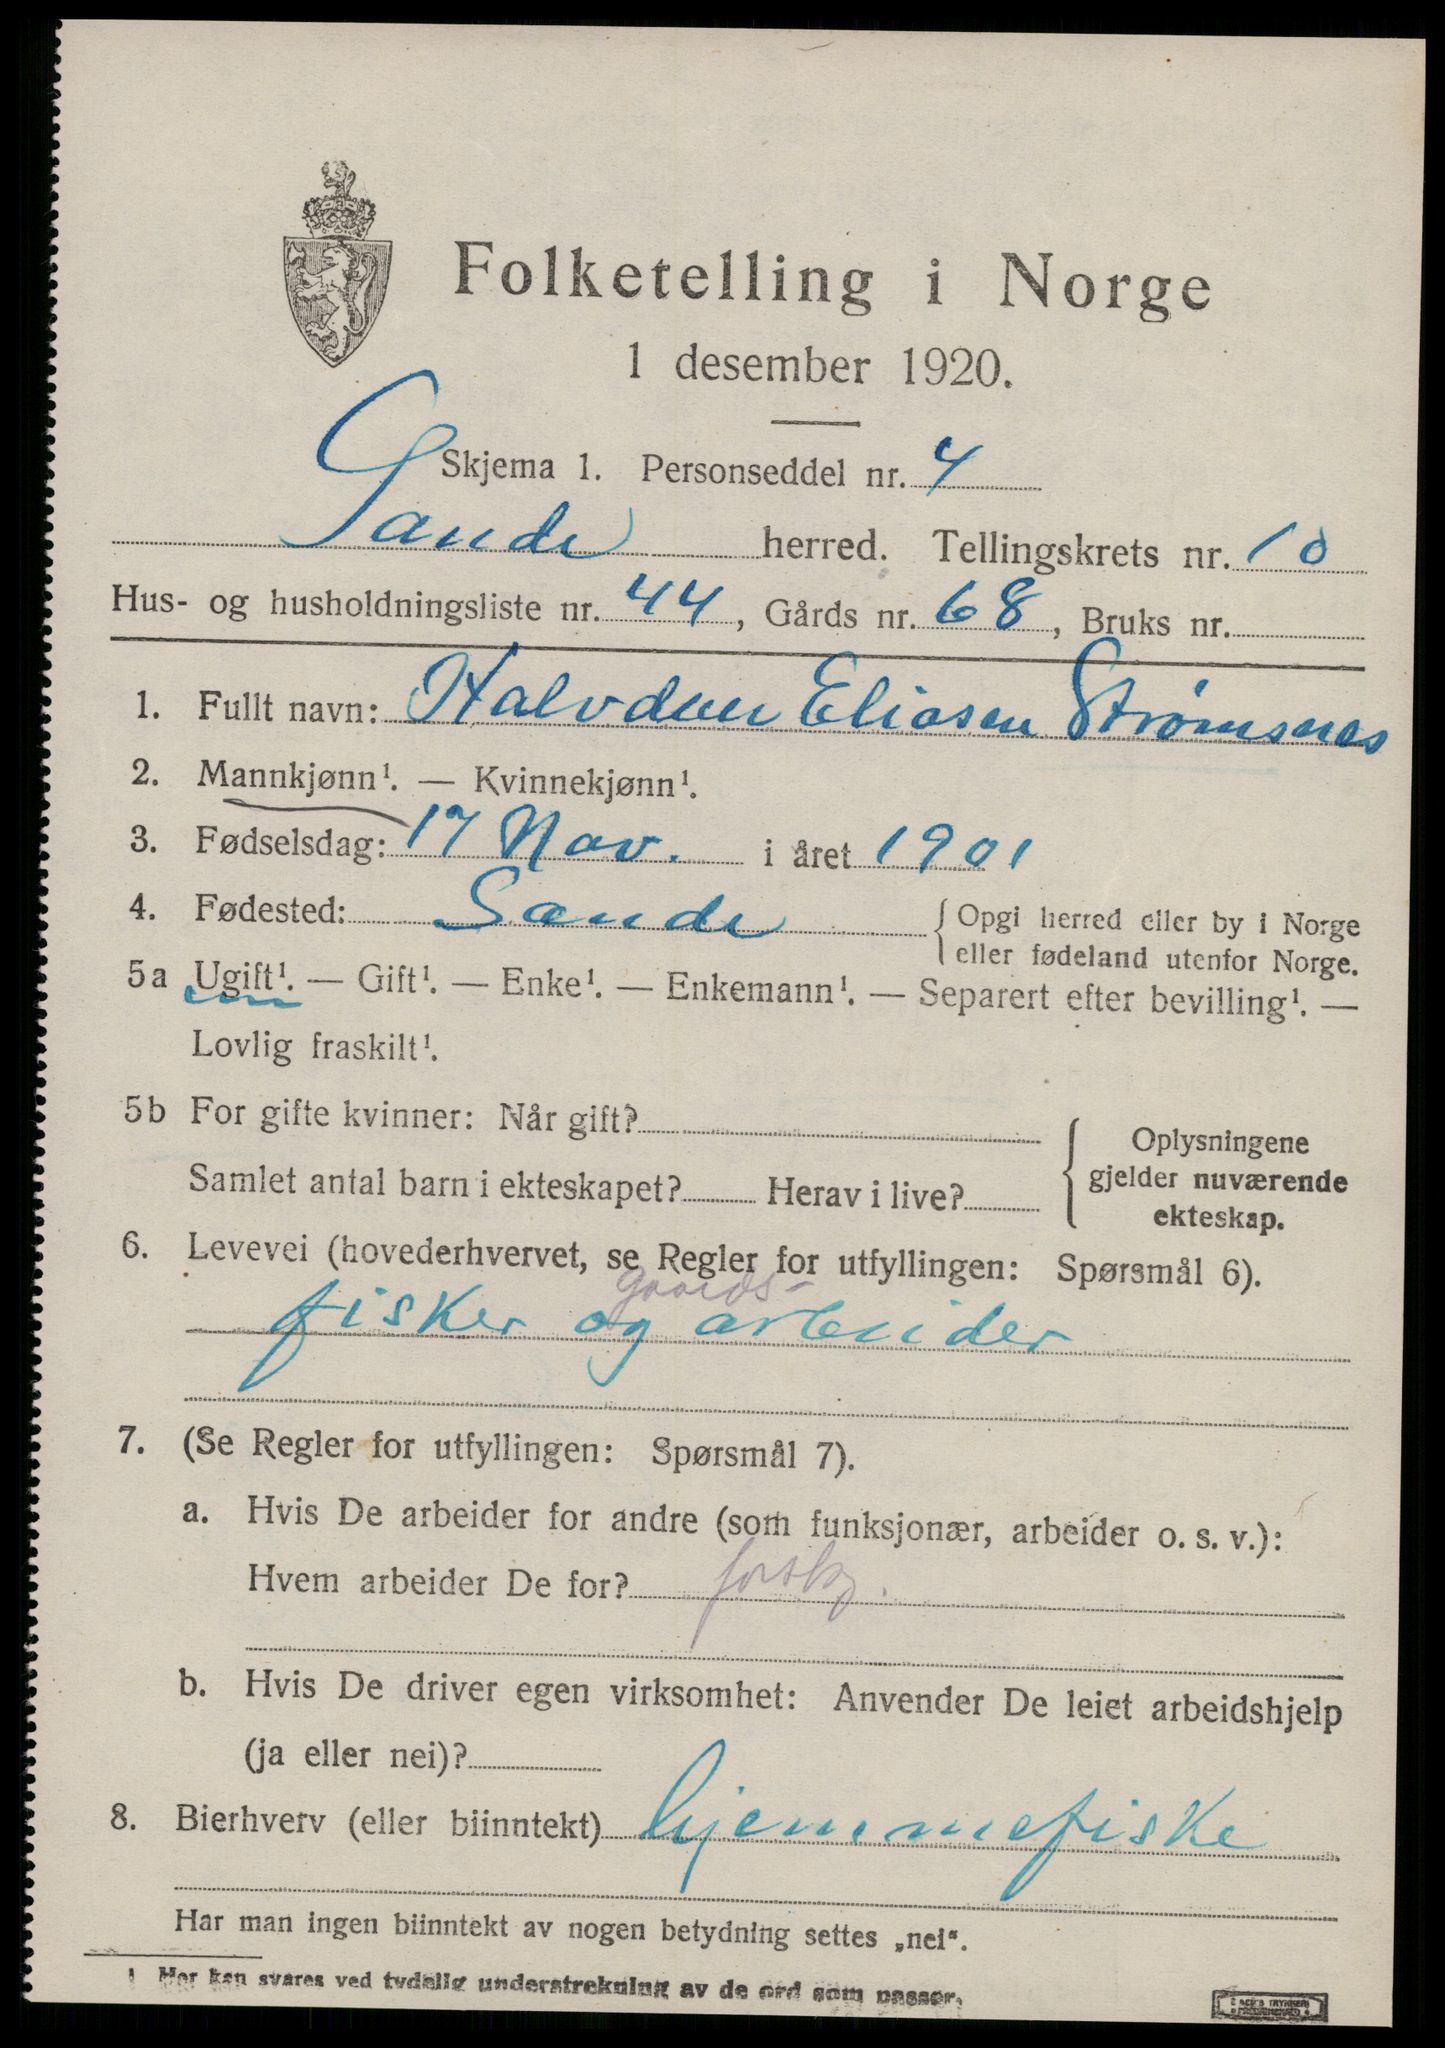 Folketelling i Norge
1 desember 1920.
Skjema 1. Personseddel nr. 4
Sande herred. Tellingskrets nr. 10
Hus- og husholdningsliste nr. 44, Gårds nr. 68, Bruks nr.
1. Fullt navn: Halvdan Eliasen Strømsnes
2. Mannkjønn¹. — Kvinnekjønn¹.
3. Fødselsdag: 17 Nov. i året 1901
4. Fødested: Sande { Opgi herred eller by i Norge
eller fødeland utenfor Norge.
5a Ugift¹. — Gift¹. — Enke¹. — Enkemann¹. — Separert efter bevilling¹. —
Lovlig fraskilt¹.
5b For gifte kvinner: Når gift?
Samlet antal barn i ekteskapet? Herav i live?
{ Oplysningene
gjelder nuværende
ekteskap.
6. Levevei (hovederhvervet, se Regler for utfyllingen: Spørsmål 6).
gaards-
fisker og arbeider
7. (Se Regler for utfyllingen: Spørsmål 7).
a. Hvis De arbeider for andre (som funksjonær, arbeider o. s. v.):
Hvem arbeider De for? forskj.
b. Hvis De driver egen virksomhet: Anvender De leiet arbeidshjelp
(ja eller nei)?
8. Bierhverv (eller biinntekt) hjemmefiske
Har man ingen biinntekt av nogen betydning settes „nei“.
1 Her kan svares ved tydelig understrekning av de ord som passer.